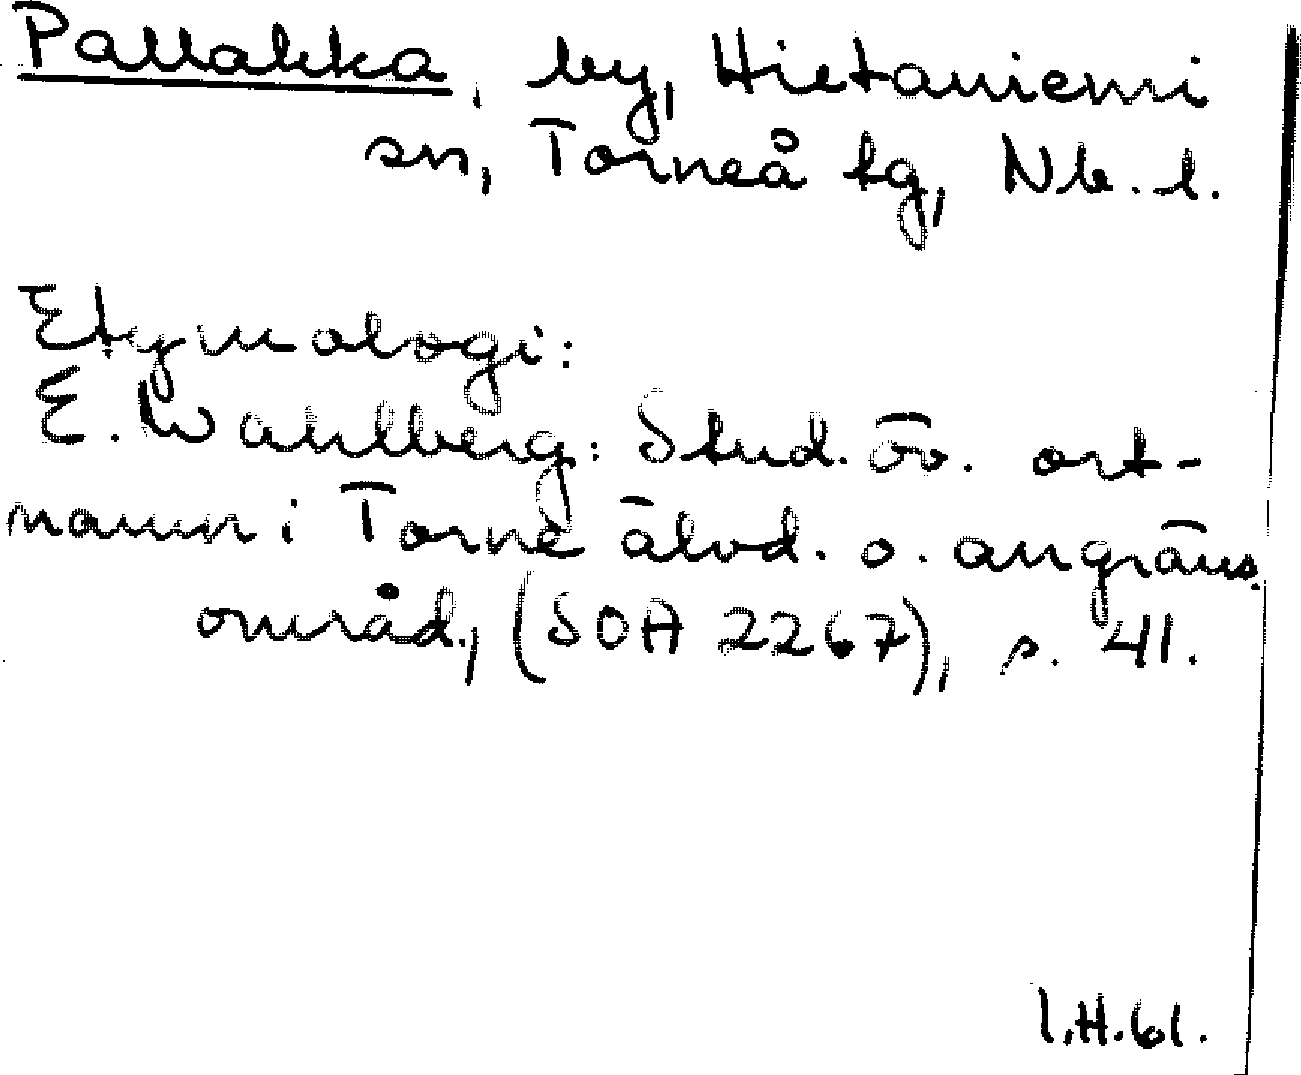 Pallakka, by, Hietaniemi
sn, Torneå tg, Nb. l.
Etymologi:
E. Wahlberg: Stud. öv. ort-
namn i Torne älvd. o. angräns.
område, (SOA 2267), s. 41.
I.H. 61.